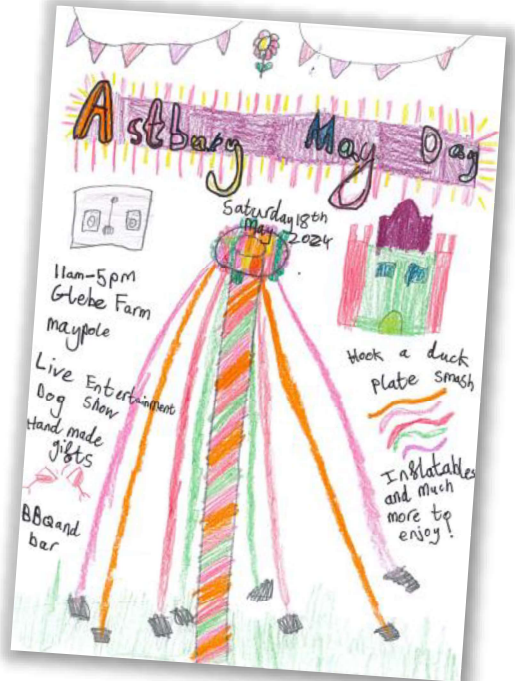 Astbury May Day
Saturday 18th
May 2024
11am-5pm
Glebe Farm
maypole
Live Entertainment
Dog Show
Hand made
gifts
BBQ and
bar
Hook a duck
plate smash
Inflatables
and much
more to
enjoy!